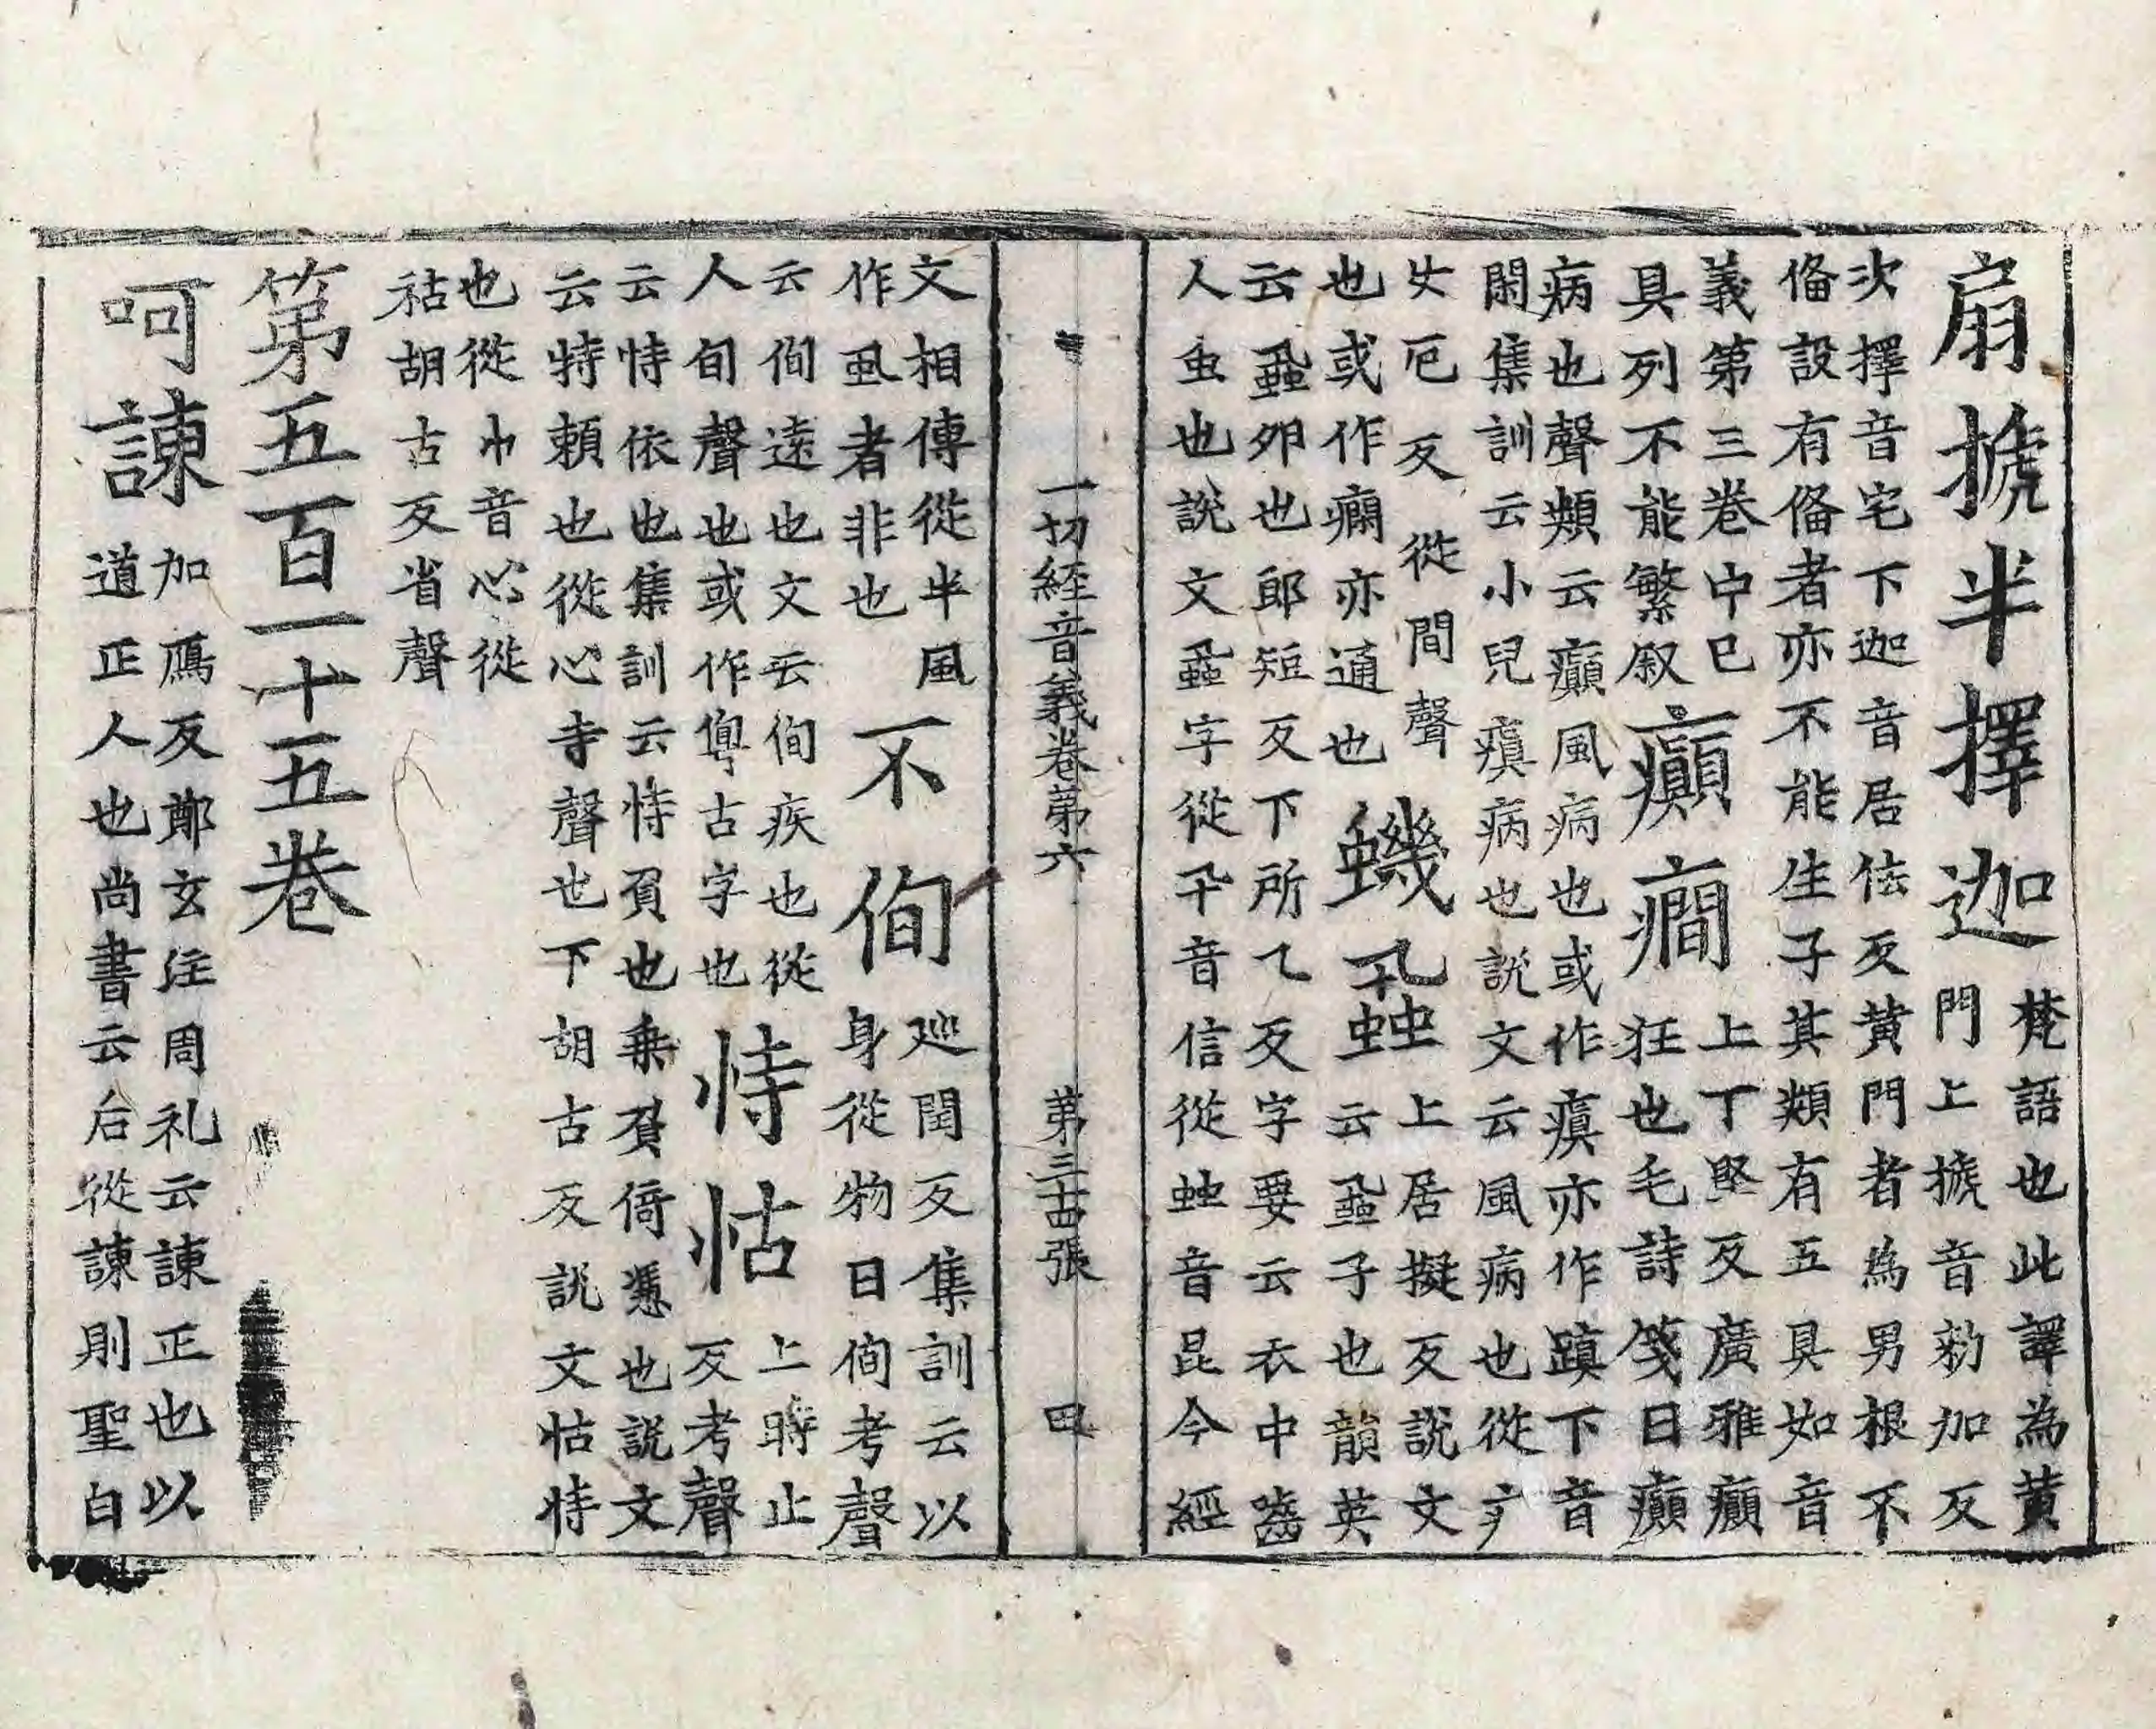 扇搋半擇迦梵語也此譯為黃門上搋音勑加反
次擇音宅下迦音居佉反黃門者為男根不
俻設有俻者亦不能生子其類有五具如音
義第三卷中已具列不能繁叙癲癇上丁堅反廣雅癲狂也毛詩箋曰癲
病也聲類云癲風病也或作瘨亦作蹎下音
閑集訓云小兒瘨病也說文云風病也從疒
疒女厄反從間聲也或作癎亦通也蟣蝨上居擬反說文云蝨子也韻英
云蝨卵也郎短反下所乙反字要云衣中齧
人虫也說文蝨字從卂音信從䖵音昆今經
一切經音義卷第六 第三十四張 田
文相傳從半風作虱者非也不侚巡閏反集訓云以身從物曰侚考聲
云侚遠也文云侚疾也從人旬聲也或作古字也恃怙上時止反考聲
云恃依也集訓云恃負也乘負倚慿也說文
云恃賴也從心寺聲也下胡古反說文怙恃
也從巾音心從祜胡古反省聲
第五百一十五卷
呵諫加鴈反鄭玄注周礼云諫正也以道正人也尚書云后從諫則聖白